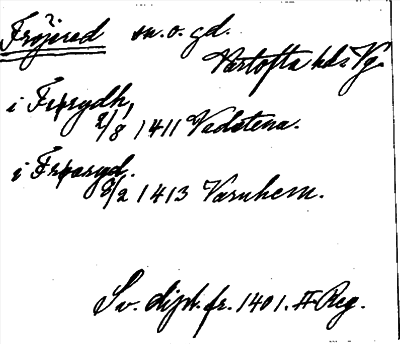 Fröjered sn. o. gd.
Vartofta hds Vg.
i Frørydh,
2/8 1411 Vadstena.
i Frøaryd.
8/2 1413 Varnhem.
Sv. dipl. fr. 1401. II Reg.